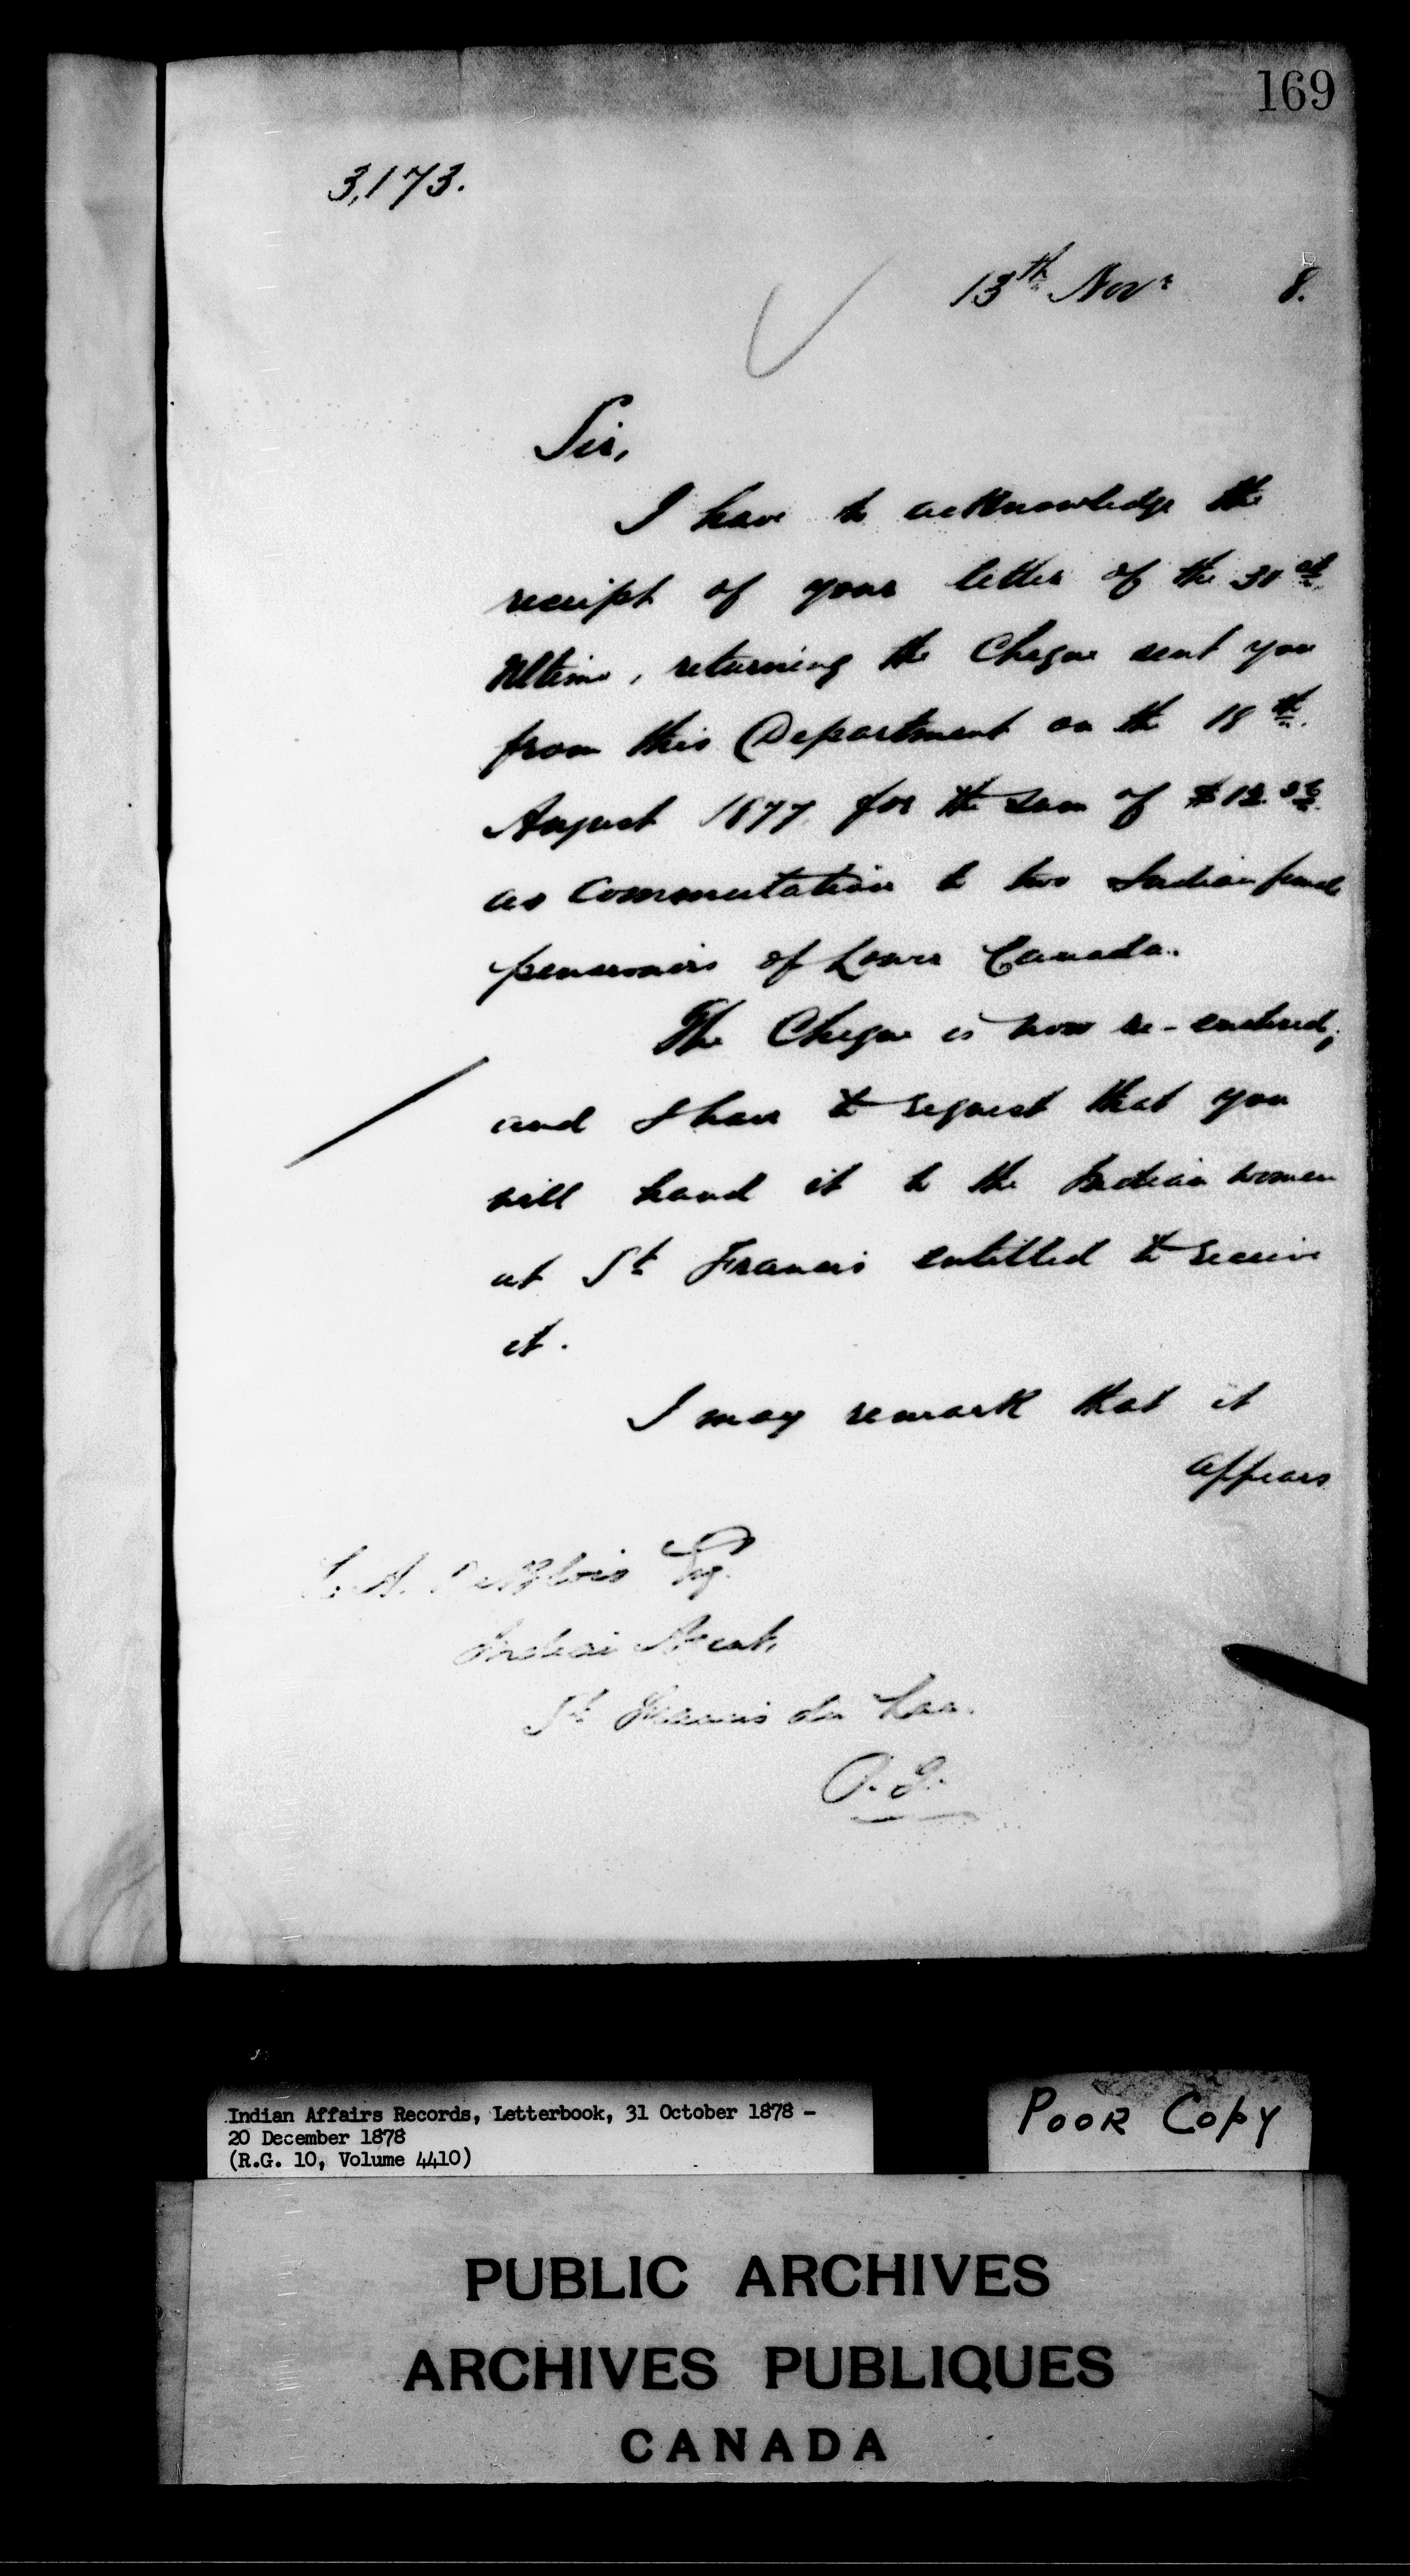 169
3,173.
13th Novr 8.
Sir,
I have to acknowledge the
receipt of your letter of the 31st
Ultimo, returning the Cheque sent you
from this Department on the 18th
August 1877 for the sum of $12
as Commutation to two Indian female
pensioners of Lower Canada.
The Cheque is now re-enclosed,
and I have to request that you
will hand it to the Indian women
at St Francis entitled to receive
it.
I may remark that it
appears
Esq.
Indian Agent,
St Francis du Lac.
P.Q.
Indian Affairs Records, Letterbook, 31 October 1878 -
20 December 1878
(R.G. 10, Volume 4410)
POOR COPY
PUBLIC ARCHIVES
ARCHIVES PUBLIQUES
CANADA